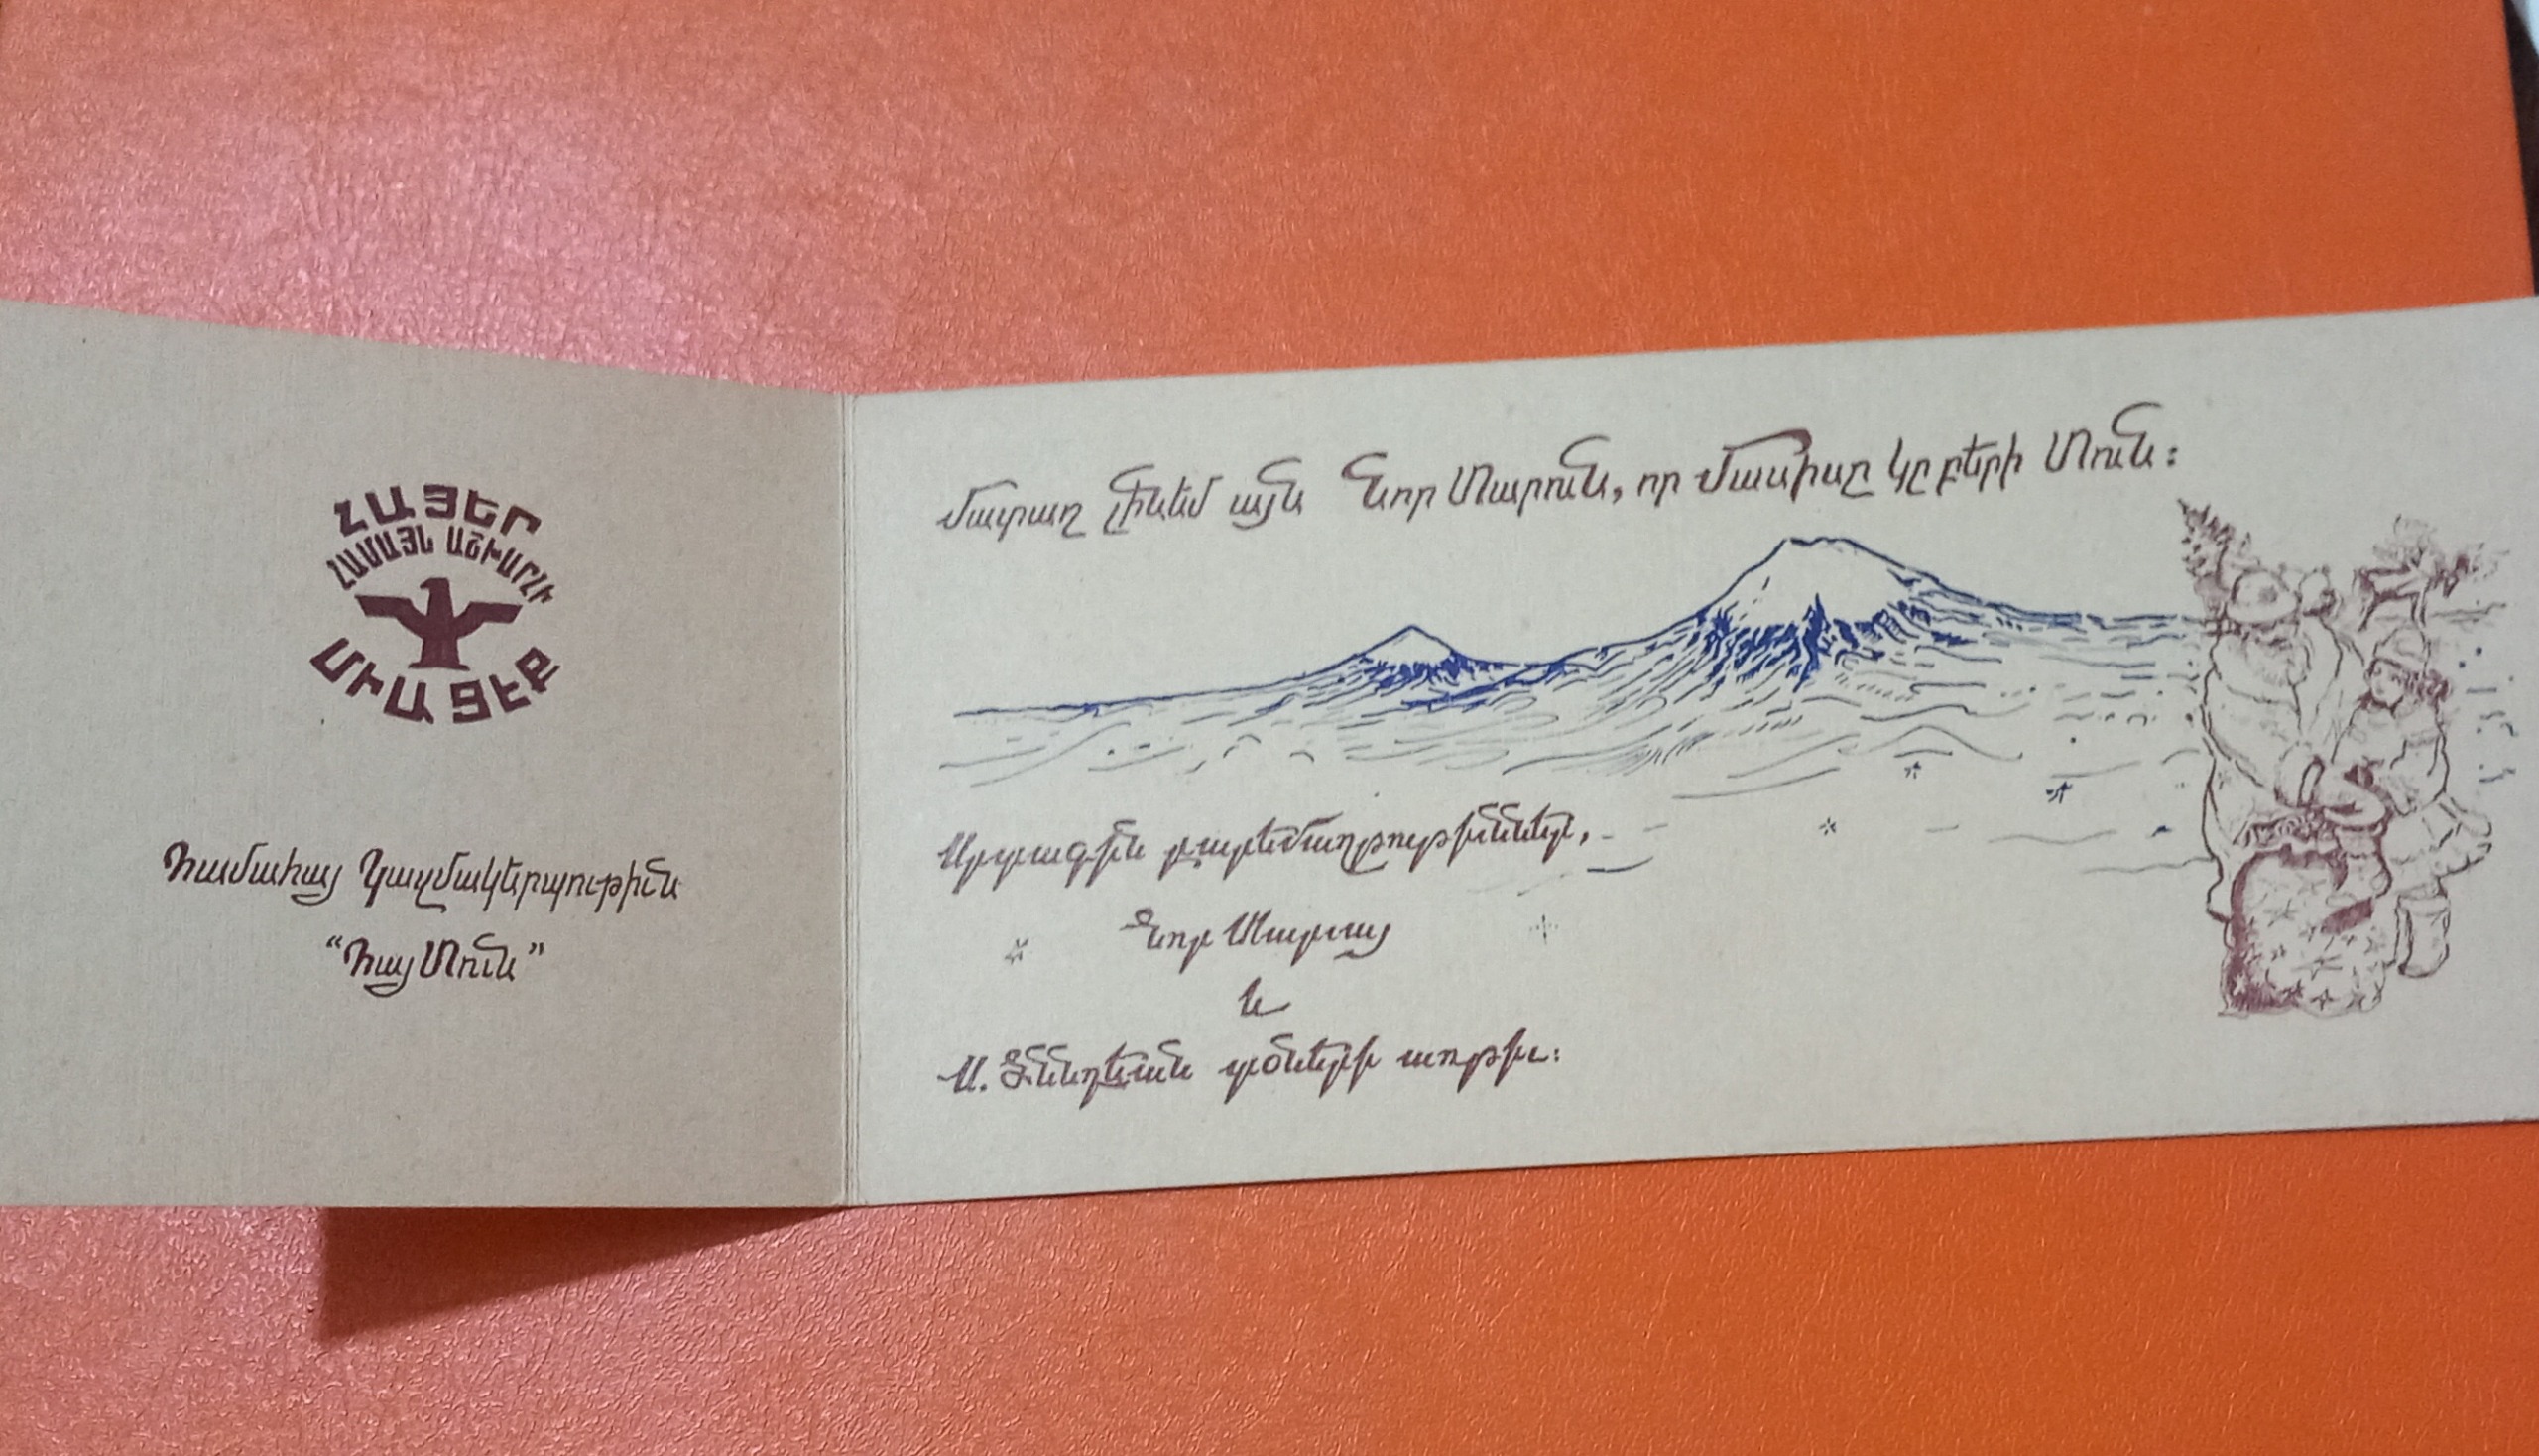 ՀԱՅԵՐ
ՀԱՄԱՅՆ ԱՇԽԱՐՀԻ
ՄԻԱՑԷՔ
Համահայ Կազմակերպութիւն
“Հայ Տուն”
Մատաղ լինեմ այն Նոր Տարուն, որ Մասիսը կը բերի Տուն:
Սրտագին բարեմաղթութիւններ,
Նոր Տարուայ
և
Ս. Ծննդեան տօների առթիւ: